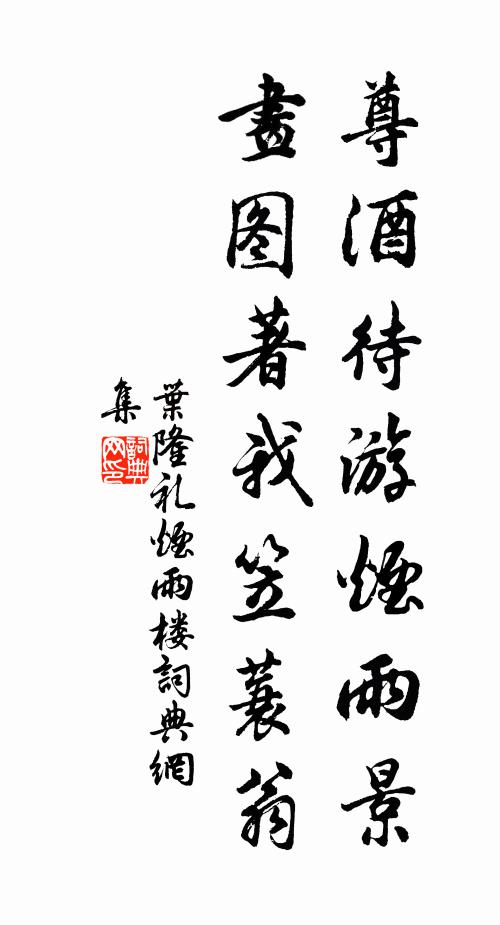 尊酒待游煙雨景
畫图著我笠蓑翁
葉隆礼煙雨楼詞典網
集
詞典
网印